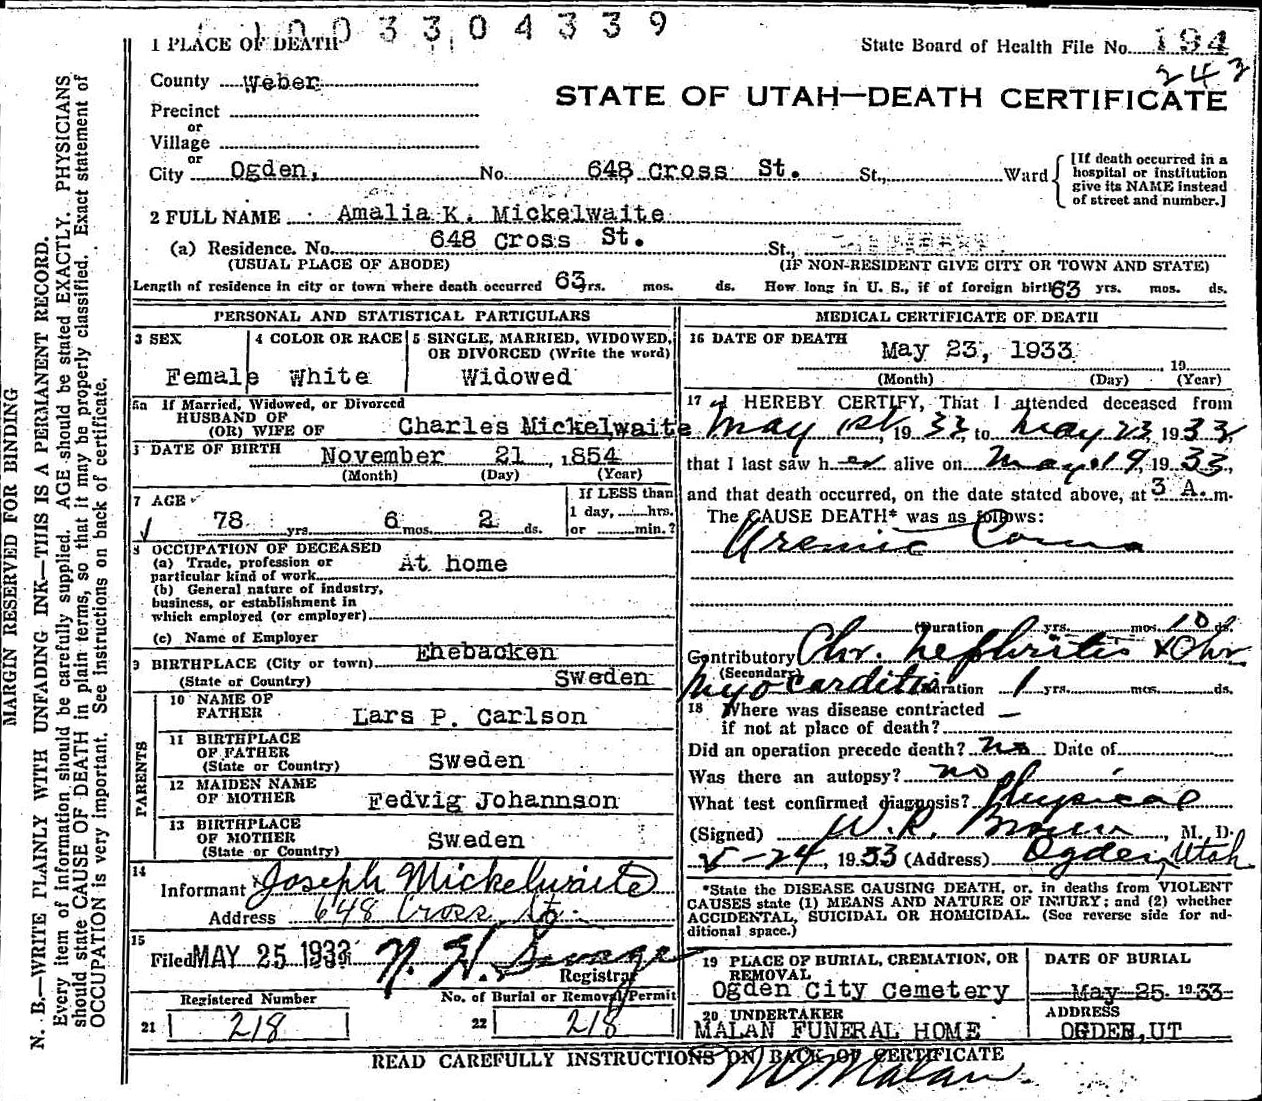 1003304339
1 PLACE OF DEATH
State Board of Health File No. 194
243
County Weber
STATE OF UTAH—DEATH CERTIFICATE
Precinct
or
Village
or
City Ogden, No. 648 Cross St. St., Ward
[If death occurred in a hospital or institution give its NAME instead of street and number.]
2 FULL NAME Amalia K. Mickelwaite
(a) Residence. No. 648 Cross St. St.,
(USUAL PLACE OF ABODE) (IF NON-RESIDENT GIVE CITY OR TOWN AND STATE)
Length of residence in city or town where death occurred 63 yrs. mos. ds. How long in U. S., if of foreign birth 63 yrs. mos. ds.
PERSONAL AND STATISTICAL PARTICULARS
3 SEX
Female
4 COLOR OR RACE
White
5 SINGLE, MARRIED, WIDOWED, OR DIVORCED (Write the word)
Widowed
5a If Married, Widowed, or Divorced
HUSBAND OF
(OR) WIFE OF Charles Mickelwaite
DATE OF BIRTH
November 21, 1854
(Month) (Day) (Year)
7 AGE
78 yrs. 6 mos. 2 ds.
If LESS than
1 day, hrs.
or min.?
8 OCCUPATION OF DECEASED
(a) Trade, profession or
particular kind of work At home
(b) General nature of industry,
business, or establishment in
which employed (or employer)
(c) Name of Employer
9 BIRTHPLACE (City or town) Ehebacken
(State or Country) Sweden
PARENTS
10 NAME OF
FATHER Lars P. Carlson
11 BIRTHPLACE
OF FATHER
(State or Country) Sweden
12 MAIDEN NAME
OF MOTHER Fedvig Johannson
13 BIRTHPLACE
OF MOTHER
(State or Country) Sweden
14
Informant Joseph Mickelwaite
Address 648 Cross St.
15
Filed MAY 25 1933 N. H. Savage
Registrar
Registered Number
21 218
No. of Burial or Removal Permit
22 218
MEDICAL CERTIFICATE OF DEATH
16 DATE OF DEATH
May 23, 1933
19
(Month) (Day) (Year)
17 I HEREBY CERTIFY, That I attended deceased from
May 1st, 1933, to May 23 1933,
that I last saw her alive on May 19, 1933,
and that death occurred, on the date stated above, at 3 A. m.
The CAUSE DEATH* was as follows:
Uremic Coma
(Duration yrs. mos. 10 ds.
Contributory Chr. Nephritis & Chr
(Secondary)
Myocarditis Duration 1 yrs. mos. ds.
18 Where was disease contracted
if not at place of death? —
Did an operation precede death? no Date of
Was there an autopsy? no
What test confirmed diagnosis? Physical
(Signed) W. R. Brown, M. D.
5-24, 1933 (Address) Ogden, Utah
*State the DISEASE CAUSING DEATH, or, in deaths from VIOLENT
CAUSES state (1) MEANS AND NATURE OF INJURY; and (2) whether
ACCIDENTAL, SUICIDAL OR HOMICIDAL. (See reverse side for ad-
ditional space.)
19 PLACE OF BURIAL, CREMATION, OR
REMOVAL
Ogden City Cemetery
DATE OF BURIAL
May 25, 1933
20 UNDERTAKER
MALAN FUNERAL HOME
ADDRESS
OGDEN, UT
READ CAREFULLY INSTRUCTIONS ON BACK OF CERTIFICATE
MARGIN RESERVED FOR BINDING
N. B.—WRITE PLAINLY WITH UNFADING INK—THIS IS A PERMANENT RECORD.
Every item of information should be carefully supplied. AGE should be stated EXACTLY. PHYSICIANS
should state CAUSE OF DEATH in plain terms, so that it may be properly classified. Exact statement of
OCCUPATION is very important. See instructions on back of certificate.